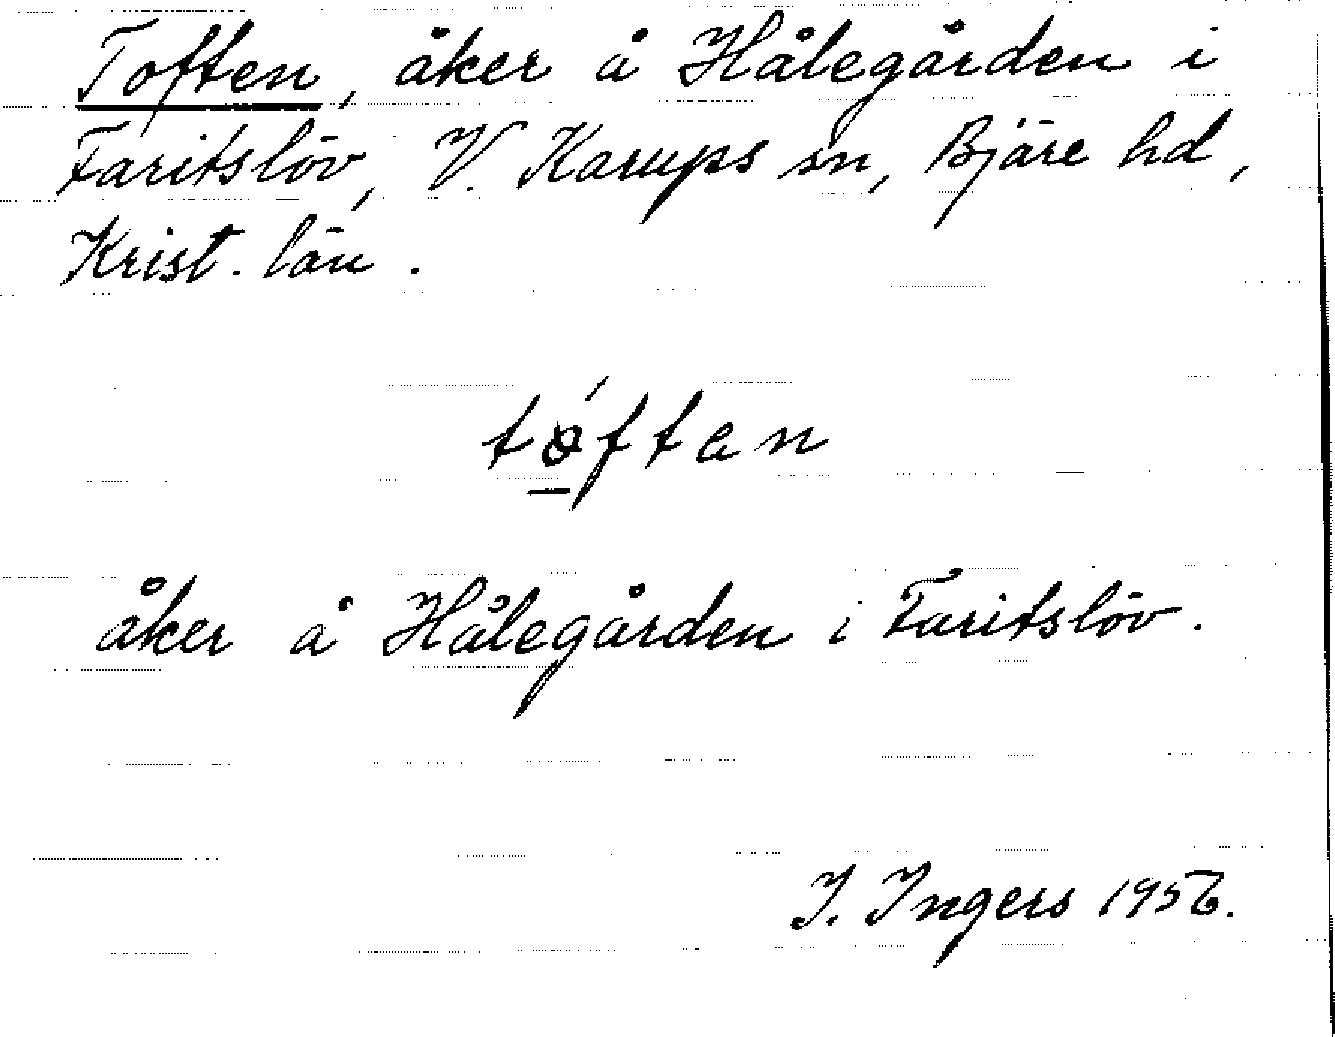 Toften, åker å Hålegården i
Faritslöv, V. Karups sn, Bjäre hd,
Krist. län.
tǿftan
åker å Hålegården i Faritslöv.
I. Ingers 1956.